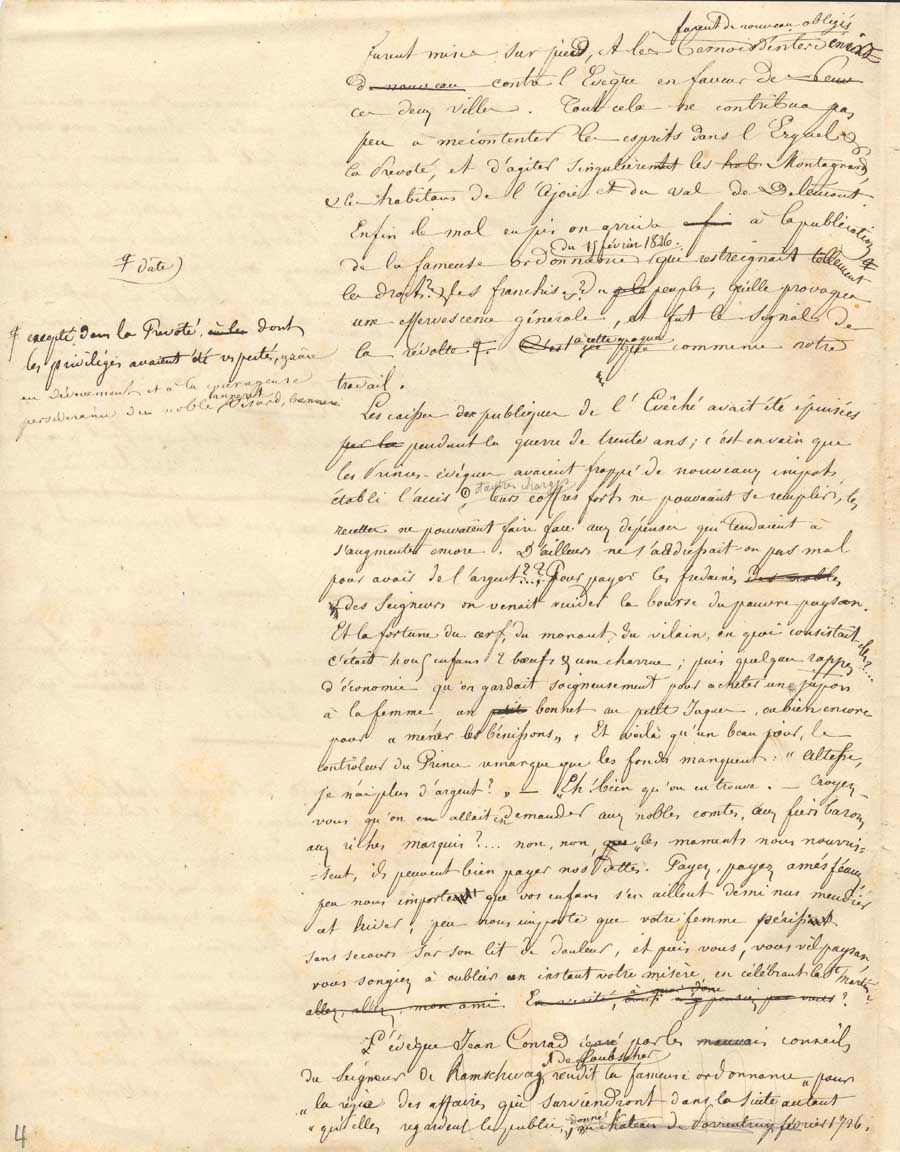 furent de nouveau obligés
furent mise sur pied, et les Bernois d'intervenir
de nouveau contre l'Evêque en faveur de
ces deux villes. Tout cela ne contribua pas
peu à mécontenter les esprits dans l'Erguel &
la Prevoté, et d'agiter singulièrement les hab Montagnards
& les habitans de l'Ajoie et du val de Delémont.
Enfin de mal en pis on arriva à la publication
du 15 février 1826.
de la fameuse ordonnance qui restreignait tellement
les droits & les franchises du peuple, qu'elle provoqua
une effervescence générale, et fut le signal de
à cette époque
la révolte. C'est que commence notre
travail.
date
excepté dans la Prevoté, dont
les privilèges avaient été respectés, grâce
au dévouement et à la courageuse
persévérance du noble Visard, banneret
Les caisses publiques de l'Evêché avait été épuisées
par la pendant la guerre de trente ans; c'est en vain que
les Princes-évêques avaient frappé de nouveaux impots
d'autres charges
établi l'accis, leurs coffres forts ne pouvaient se remplir, les
recettes ne pouvaient faire face aux dépenses qui tendaient à
s'augmenter encore. D'ailleurs ne s'addressait-on pas mal
pour avoir de l'argent?? Pour payer les fredaines des nobles
des Seigneurs on venait vuider la bourse du pauvre paysan.
Et la fortune du cerf, du manant, du vilain, en quoi consistait-elle?...
c'était enfans 2 bœufs & une charrue; puis quelques rappes
d'économie qu'on gardait soigneusement pour acheter un jupon
à la femme un petit bonnet au petit Jaques, ou bien encore
pour "mener les bénissons". Et voilà qu'un beau jour, le
contrôleur du Prince remarque que les fonds manquent: "Altesse,
je n'ai plus d'argent?" — "Eh! bien qu'on en trouve. — Croyez-
vous qu'on en allait demander aux nobles comtes, aux fiers barons
aux riches marquis?... non, non, les manants nous nourris-
sent, ils peuvent bien payer nos dettes. Payez, payez amés féaux
peu nous importe que vos enfans s'en aillent demi nus mendier
cet hiver, peu nous importe que votre femme périsse
sans secours sur son lit de douleur, et puis vous, vous vil paysan
vous songiez à oublier un instant votre misère, en célébrant la St Martin?
allez, allez, mon ami. En vérité, à quoi donc pensiez vous?
L'évêque Jean Conrad égaré par les mauvais conseils
& de Laubscher
du Seigneur de Ramschwag, rendit la fameuse ordonnance "pour
"la régie des affaires qui surviendront dans la suite autant
"qu'elles regardent le public, donné au chateau de Porrentruy février 1726.
4